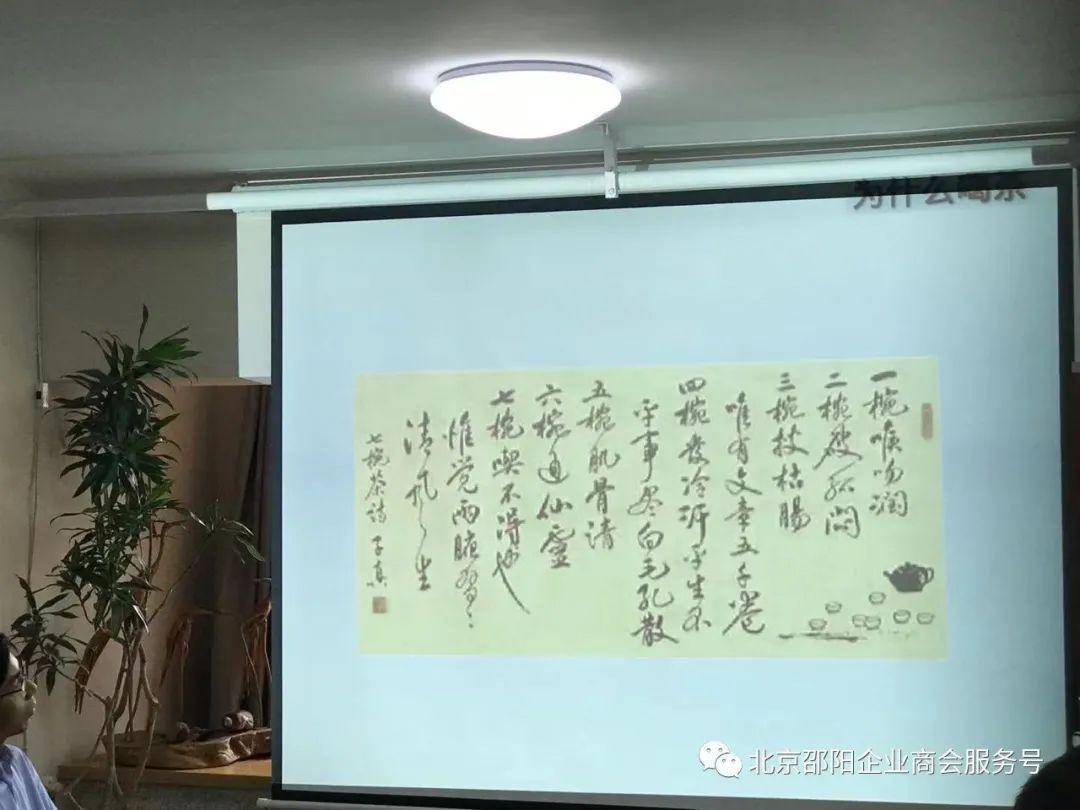 为什么喝茶
一椀喉吻润
二椀破孤闷
三椀搜枯肠
唯有文章五千卷
四椀发轻汗平生不
平事尽向毛孔散
五椀肌骨清
六椀通仙灵
七椀喫不得也
惟觉两腋习习
清风生
七椀茶诗 子真
北京邵阳企业商会服务号